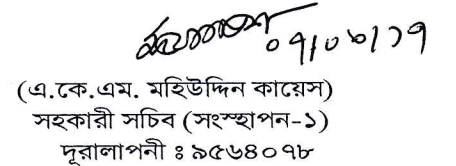 ০৭/০৮/১৭
(এ.কে.এম. মহিউদ্দিন কায়েস)
সহকারী সচিব (সংস্হাপন-১)
দূরালাপনী ঃ ৯৫৬৪০৭৮